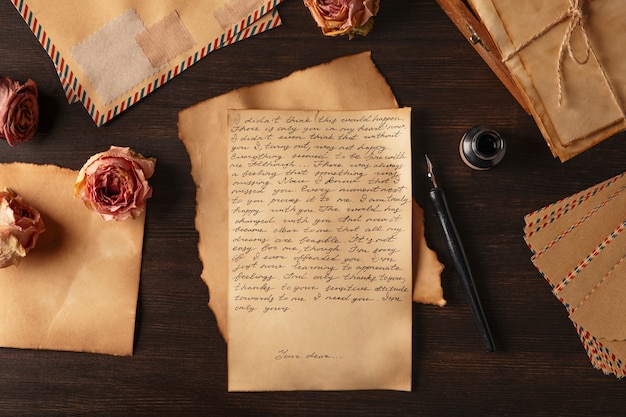 I didn't think this would happen.
There is only you in my heart now.
I didn't even think that without
you I was only not happy
Everything seemed to be fine with
me. Although... There was always
a feeling that something was
missing. Now I know that I
missed you. Every moment next
to you proves it to me. I am truly
happy with you. The world has
changed with you. And now it
became clear to me that all my
dreams are feasible. It's not
easy for me, though. I'm sorry
if I ever offended you. I'm
just now learning to appreciate
feelings. And only thanks to you,
thanks to your sensitive attitude
towards to me. I need you. I'm
only yours
Your dear...